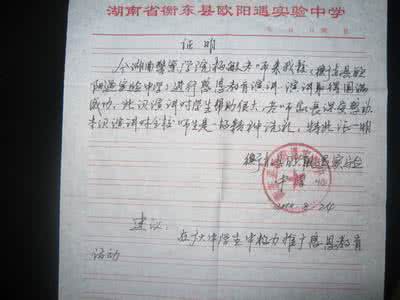 湖南省衡东县欧阳遇实验中学
年 月 日 第 页
证明
今湖南警官学院杨敏老师来我校(衡东县欧
阳遇实验中学)进行感恩教育演讲,演讲取得圆满
成功,此次演讲对学生帮助很大,老师家长深受感动
本次演讲对全校师生是一次精神洗礼,特此证明
衡东县欧阳遇实验
中学
建议:
在广大中学生中极力推广感恩教育
活动